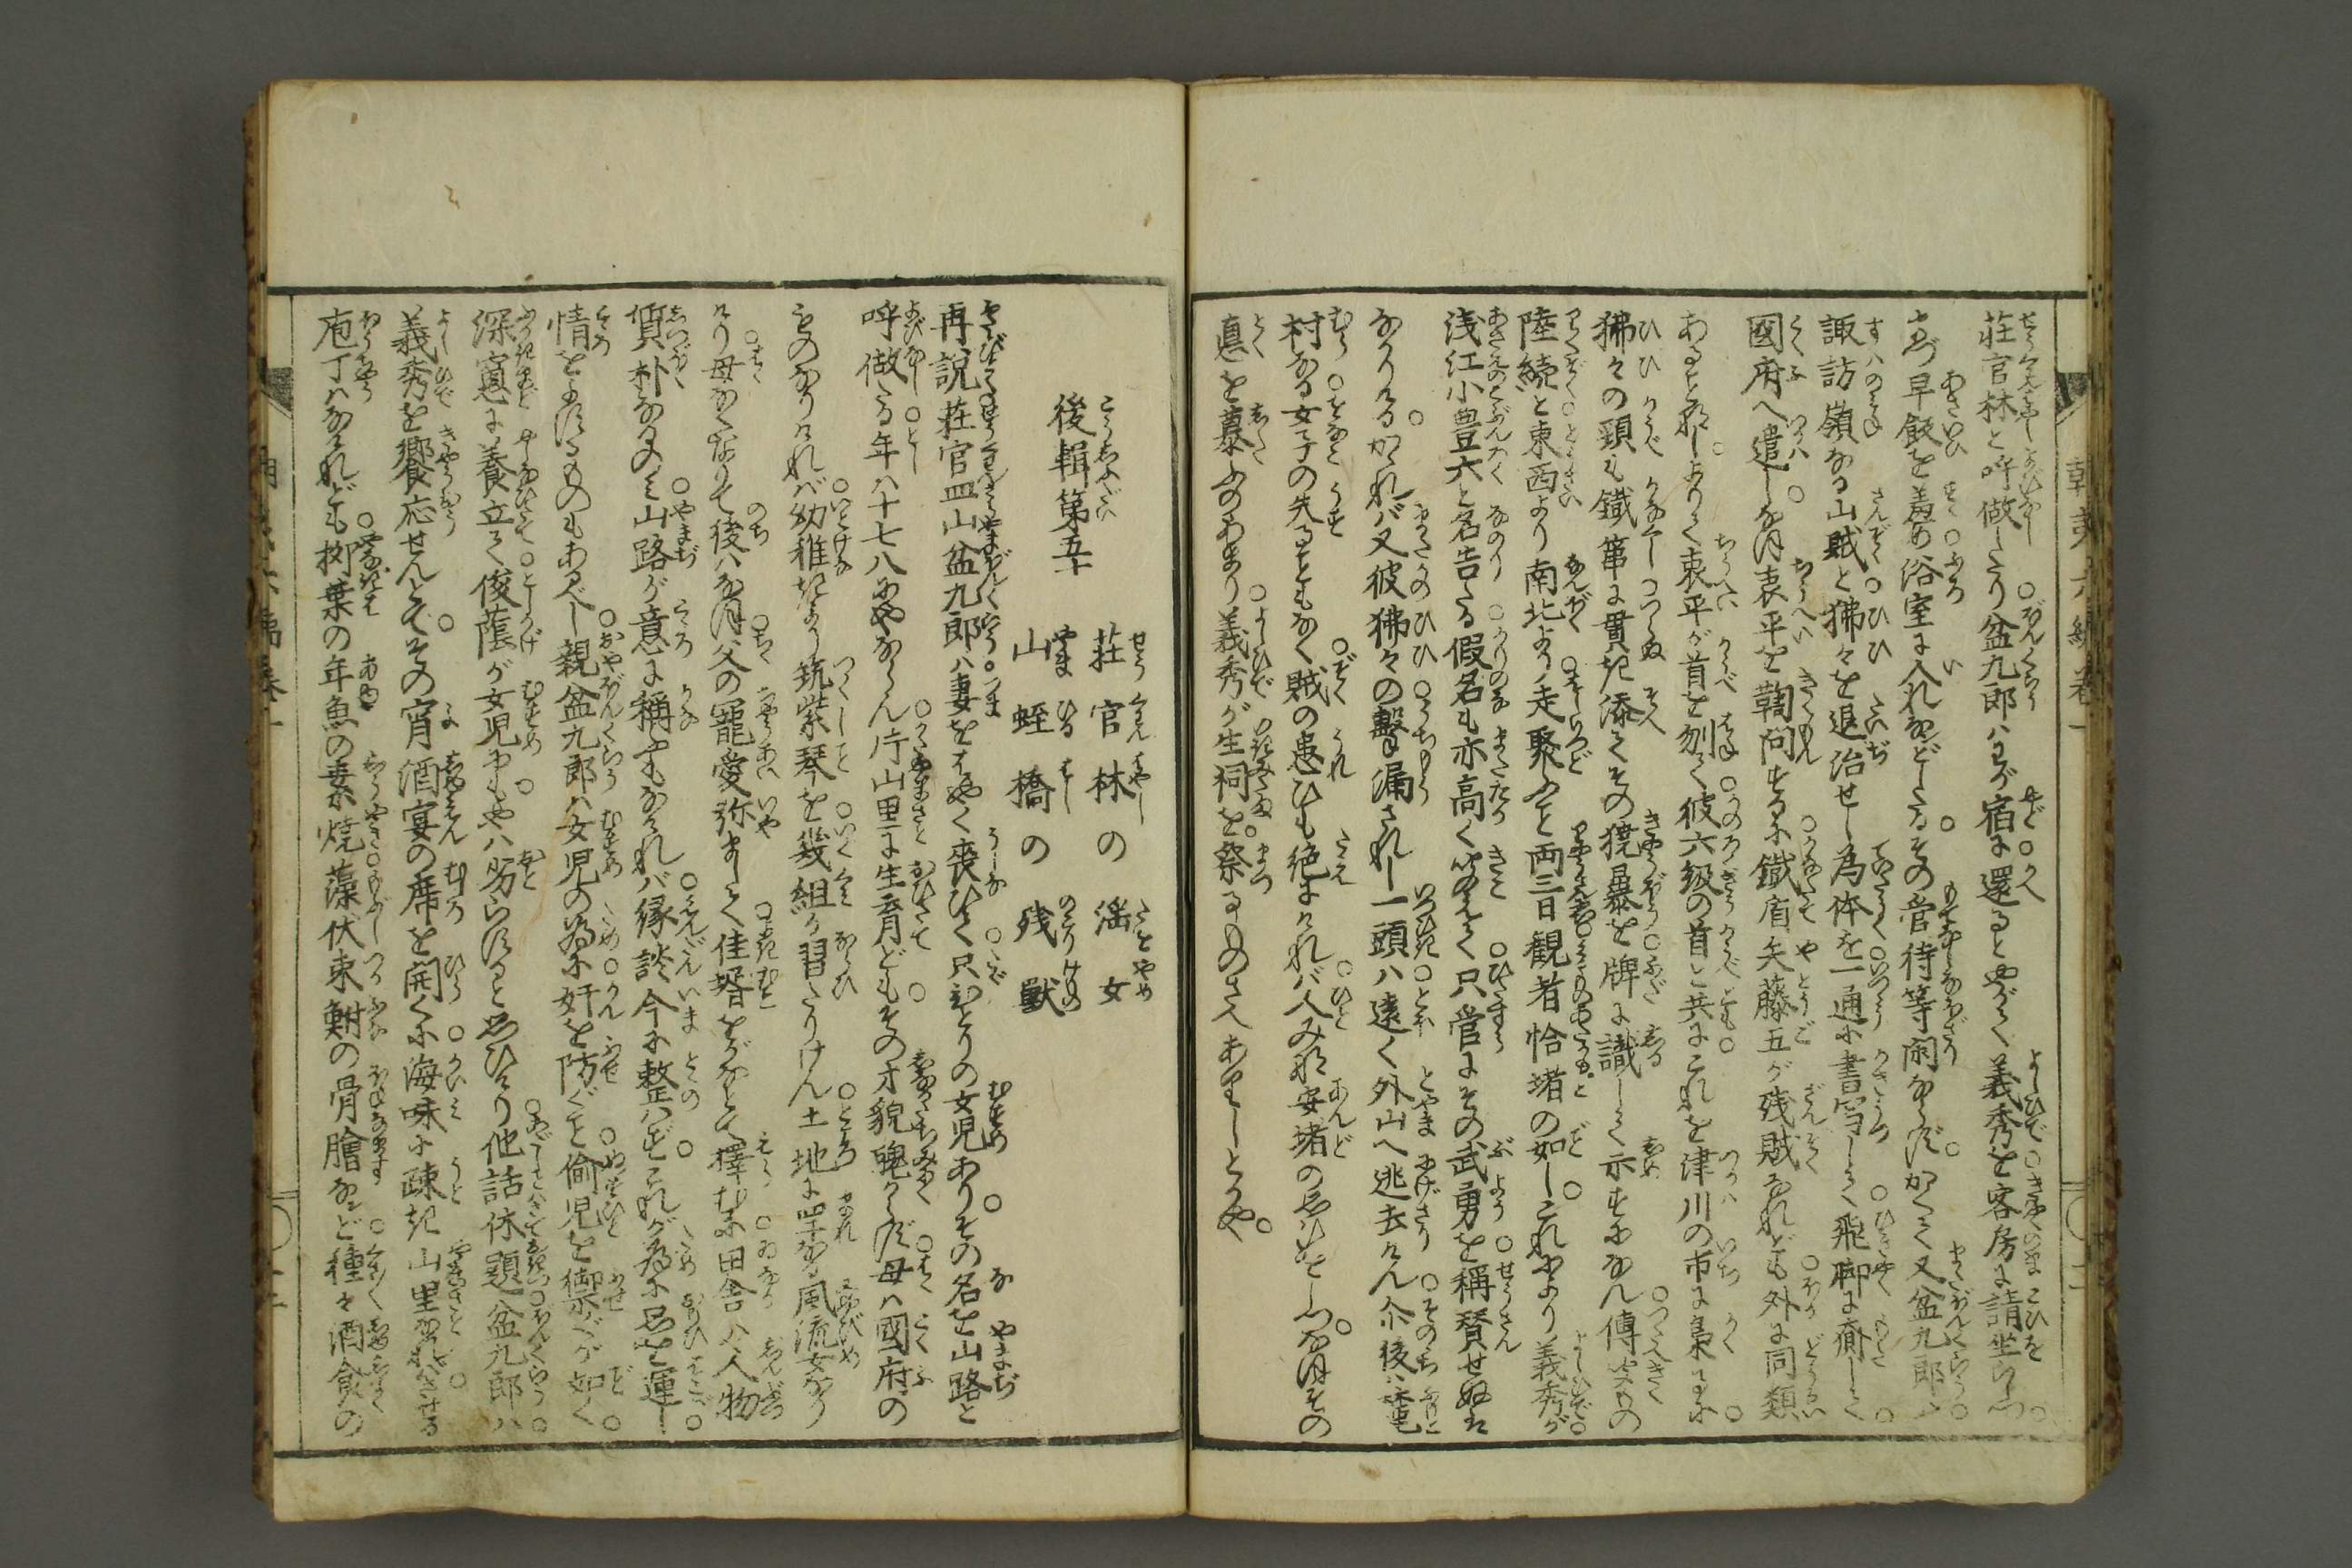 荘官林と呼做したり盆九郎ハわが宿に還るとやがて義秀を客房に請坐らしつ
まづ早飯を羞め浴室に入れなどしたるその管待等閑ならずかくて又盆九郎ハ
諏訪嶺なる山賊と狒々を退治せし為体を一通に書写して飛脚に齎して
國府へ遣しゝ程衷平を鞫問するに鐵盾矢藤五が残賊なれども外に同類
あることなしよりて衷平が首を刎て彼六級の首と共にこれを津川の市に梟るに
狒々の頸も鐵箒に貫き添てその獍暴を牌に識して示すになん傳聞もの
陸続と東西より南北より走聚ふこと両三日観者恰堵の如しこれにより義秀が
浅江小豊六と名告たる假名も亦高く聞えて只管にその武勇を稱賛せぬは
なかりけるかゝれバ又彼狒々の撃漏されし一頭ハ遠く外山へ逃去けん尒後ハ麓
村なる女子の失ることもなく賊の患ひも絶にけれバ人みな安堵の思ひをしつゝその
悳を慕ふのあまり義秀が生祠を祭るものさへありしとかや
後輯第五十
荘官林の淫女
山蛭橋の残獸
再説荘官皿山盆九郎ハ妻をはやく喪ひて只ひとりの女児ありその名を山路と
呼做たる年ハ十七八にやならん片山里に生育どもその才貌醜からず母ハ國府の
ものなりけれバ幼稚きより筑紫琴を幾組か習ひたりけん土地に罕なる風流女なり
けり母なくなりて後ハなほ父の寵愛弥ましく佳婿をがなとて擇むに田舎ハ人物
質朴なるのミ山路が意に稱ふもなけれバ縁談今に整ハずこれが為に思を運し
情をよするものもあるべし親盆九郎ハ女児の為に奸を防ぐこと偷児を禦ぐが如く
深窻に養立て俊蔭が女児にもやハ劣らぬと思ひけり他話休題盆九郎ハ
義秀を饗応せんとてその宵酒宴の席を開くに海味に疎き山里なれバさせる
庖丁ハなけれども柳葉の年魚の素焼藻伏束鮒の骨膾など種々酒食の